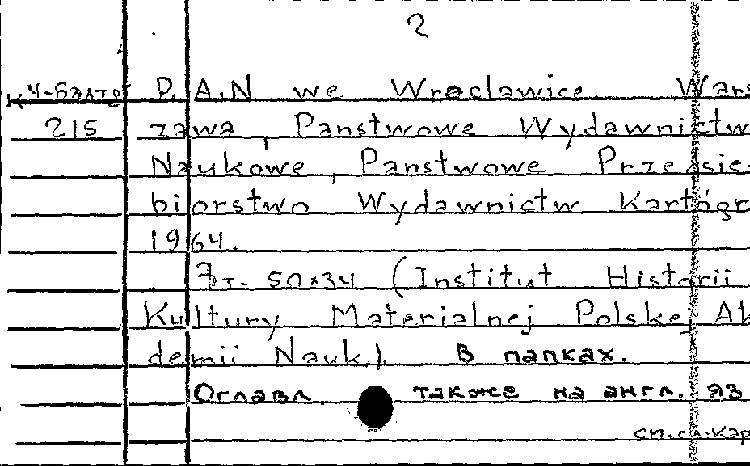 2
К Ч-Балто P.A.N we Wrocławice Wars
215 zawa, Panstwowe Wydawnictw
Naukowe, Panstwowe Przedsie-
biorstwo Wydawnictw Kartogr
1964.
7т. 50x34 (Institut Historii
Kultury Materialnej Polskej Ak
demii Nauk). В папках.
Оглавл. также на англ. яз
см.сл.кар